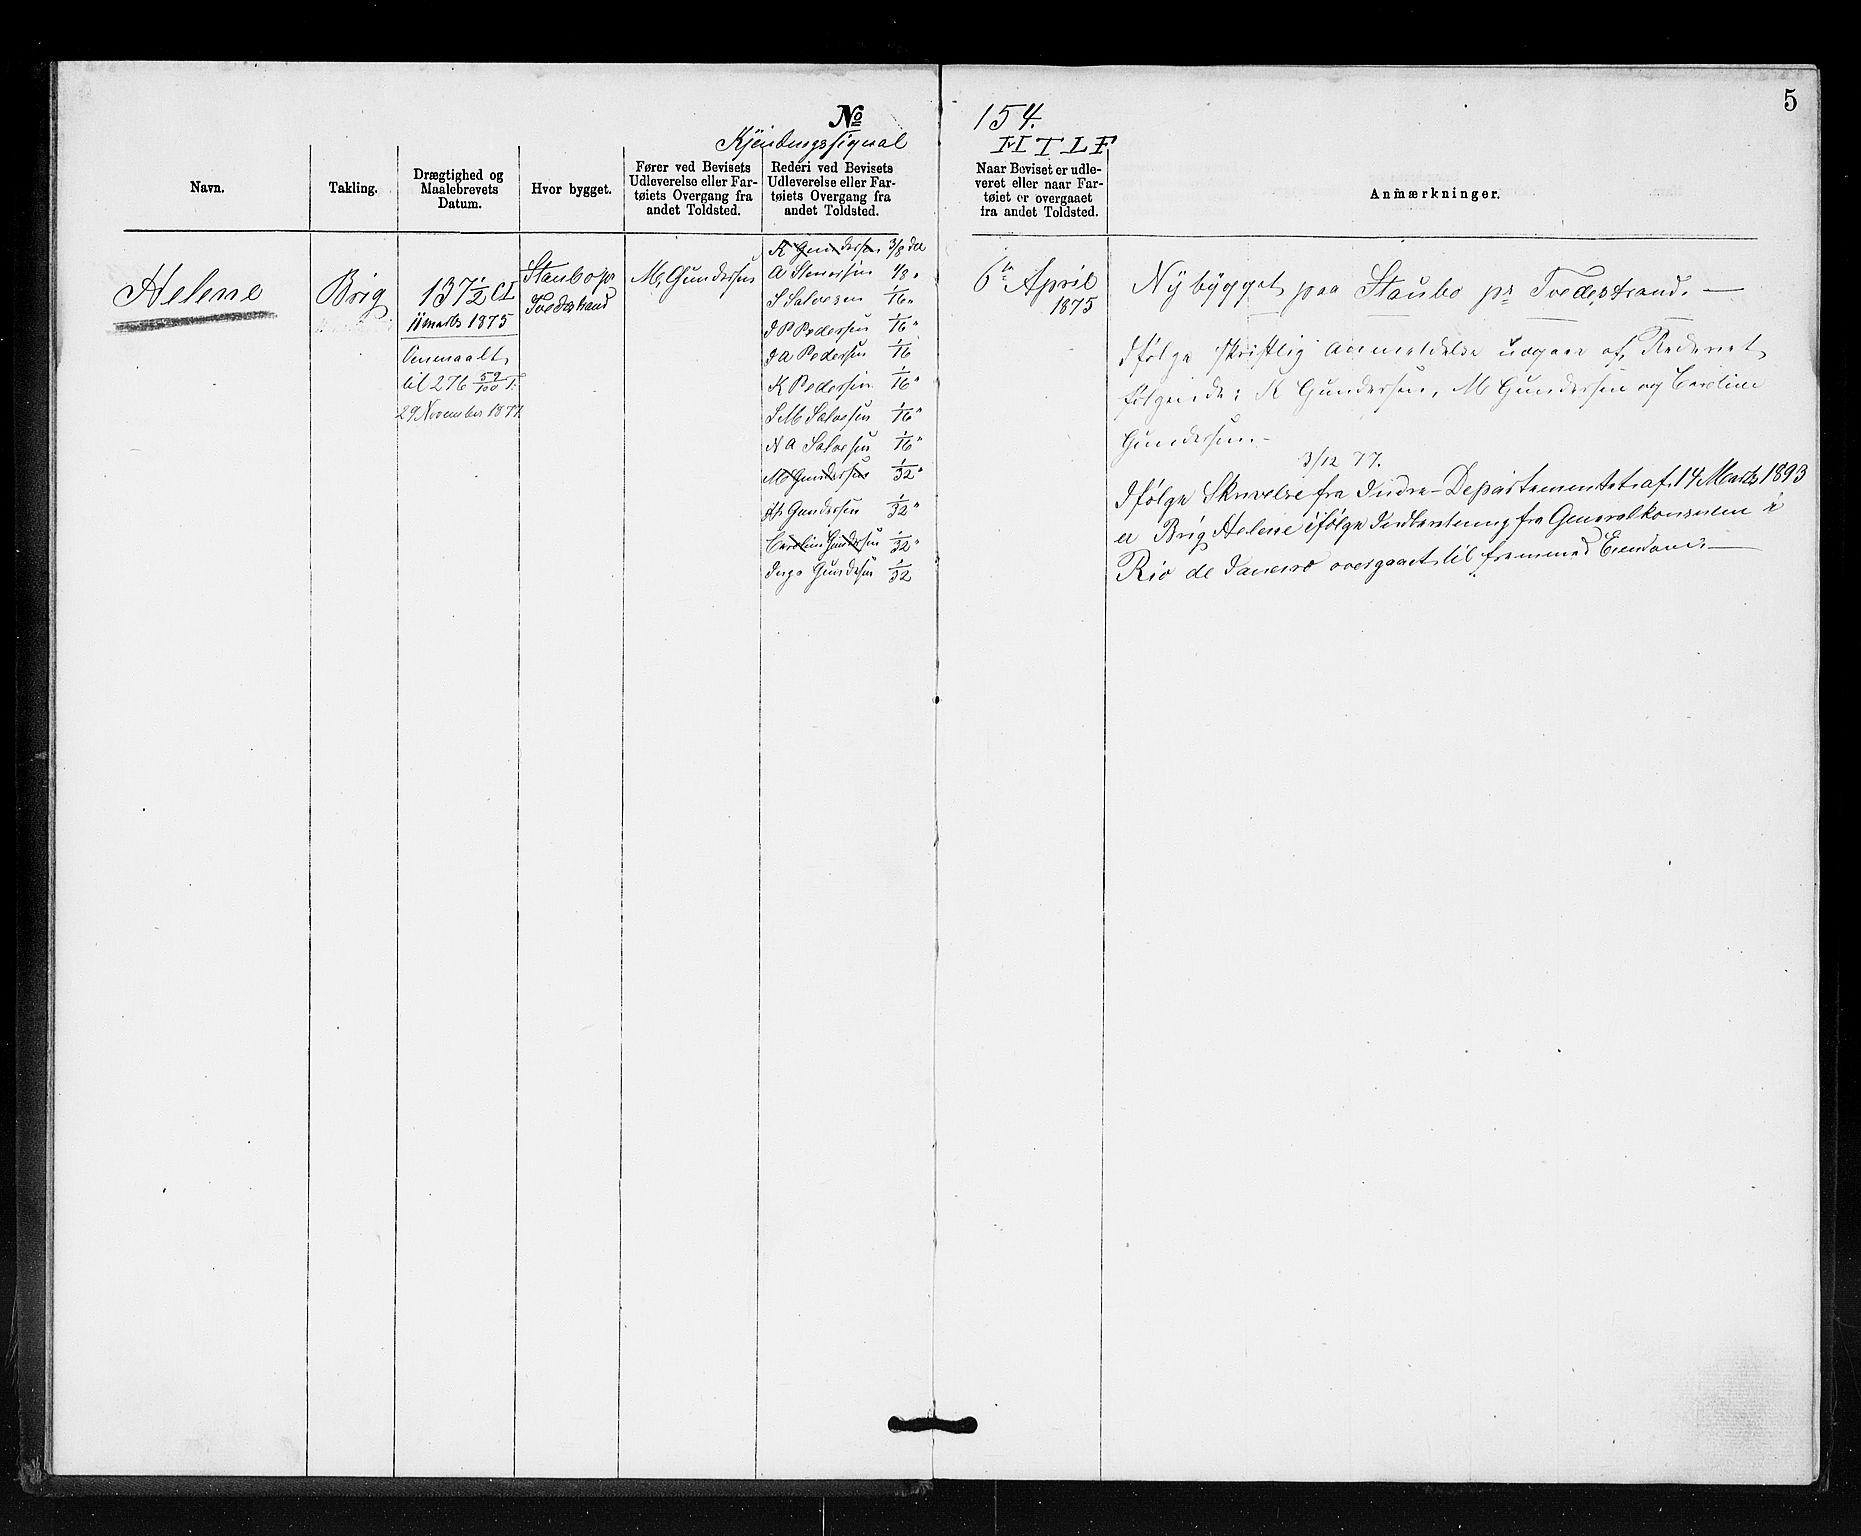 5
No 154.
Kjendingssignal HTLF
Navn.
Takling.
Drægtighed og
Maalebrevets
Datum.
Hvor bygget.
Fører ved Bevisets
Udleverelse eller Far-
tøiets Overgang fra
andet Toldsted.
Rederi ved Bevisets
Udleverelse eller Far-
tøiets Overgang fra
andet Toldsted.
Naar Beviset er udle-
veret eller naar Far-
tøiet er overgaaet
fra andet Toldsted.
Anmærkninger.
Helene
Brig
137 1/2 Cl
11 marts 1875
Ommaalt
til 276 59/100 T.
29 November 1877.
Staubo pr
Tvedestrand
M. Gundersen
K Gundersen 3/8 del
A Stenersen 1/8 "
S Salvesen 1/16 "
J P Pedersen 1/16 "
J A Pedersen 1/16
K Pedersen 1/16 "
S M Salvesen 1/16 "
N A Salvesen 1/16 "
M Gundersen 1/32 "
Gundersen 1/32 "
Caroline Gundersen 1/32 "
Inga Gundersen 1/32
6te April
1875
Nybygget paa Staubo pr Tvedestrand. —
Ifølge skriftlig Anmeldelse udgaar af Rederiet
følgende: K Gundersen, M Gundersen og Caroline
Gundersen. -
3/12 77.
Ifølge Skrivelse fra Indre-Departementet af 14 Marts 1893
er Brig Helene ifølge Indberetning fra Generalkonsulen i
Rio de Janeiro overgaaet til fremmed Eiendom. —